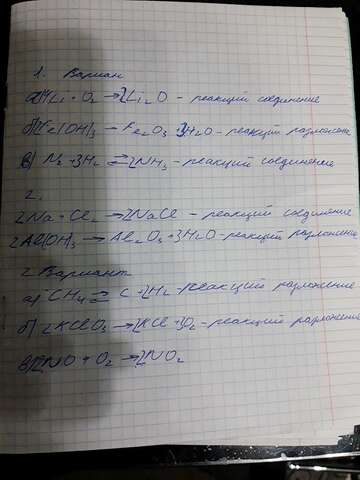 1. Вариан
а) 4Li + O₂ → 2Li₂O - реакций соединение
б) 2Fe(OH)₃ → Fe₂O₃ + 3H₂O - реакций разложение
в) N₂ + 3H₂ ⇄ 2NH₃ - реакций соединение
2.
2Na + Cl₂ → 2NaCl - реакций соединение
2Al(OH)₃ → Al₂O₃ + 3H₂O - реакций разложение
2 Вариант
а) CH₄ ⇄ C + 2H₂ - реакций разложение
б) 2KClO₃ → 2KCl + 3O₂ - реакций разложения
в) 2NO + O₂ → 2NO₂